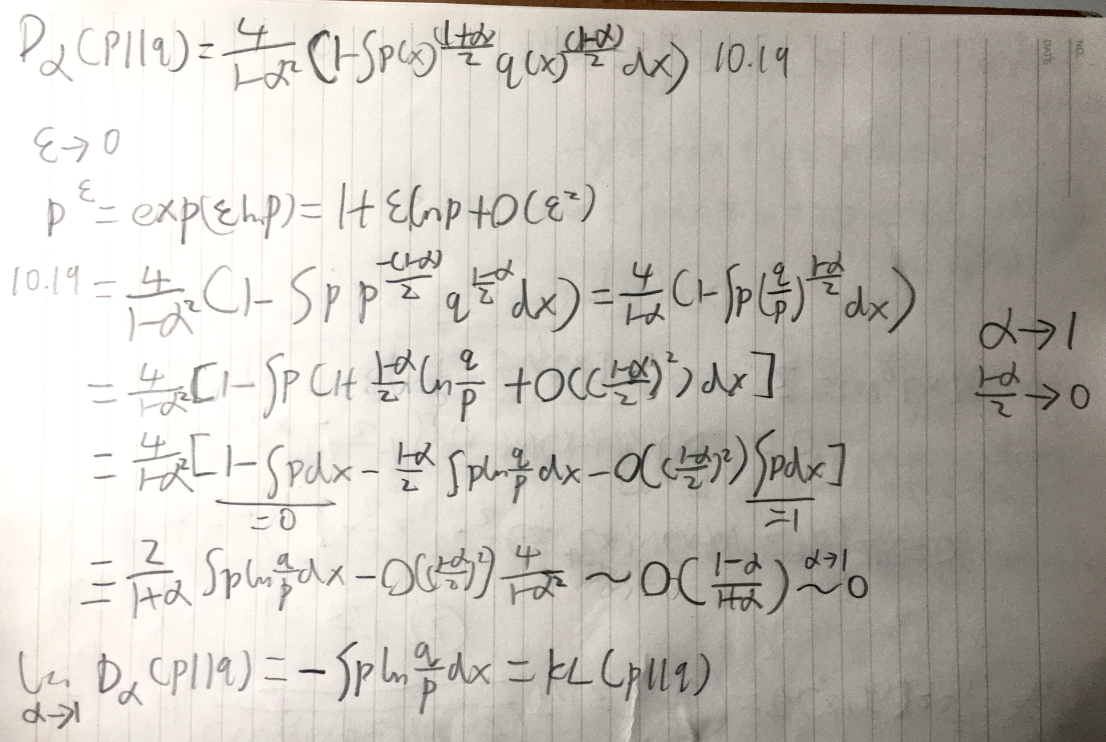 D_α(p||q) = \frac{4}{1-α²} (1-∫p(x)^{\frac{(1+α)}{2}} q(x)^{\frac{(1-α)}{2}} dx) 10.19
ε→0
p^ε = exp(ε ln p) = 1 + ε ln p + O(ε²)
10.19 = \frac{4}{1-α²} (1 - ∫ p p^{\frac{-(1-α)}{2}} q^{\frac{1-α}{2}} dx) = \frac{4}{1-α} (1-∫p(\frac{q}{p})^{\frac{1-α}{2}} dx)
α→1
= \frac{4}{1-α²} [1-∫p(1+\frac{1-α}{2} ln\frac{q}{p} + O((\frac{1-α}{2})²) dx]
\frac{1-α}{2} → 0
= \frac{4}{1-α²} [1-∫pdx - \frac{1-α}{2} ∫p ln\frac{q}{p} dx - O((\frac{1-α}{2})²) ∫pdx]
=0 =1
= \frac{2}{1+α} ∫p ln\frac{q}{p} dx - O((\frac{1-α}{2})²) \frac{4}{1-α²} ~ O(\frac{1-α}{1+α}) \overset{α→1}{~} 0
lim_{α→1} D_α(p||q) = -∫p ln\frac{q}{p} dx = KL(p||q)
NO.
DATE